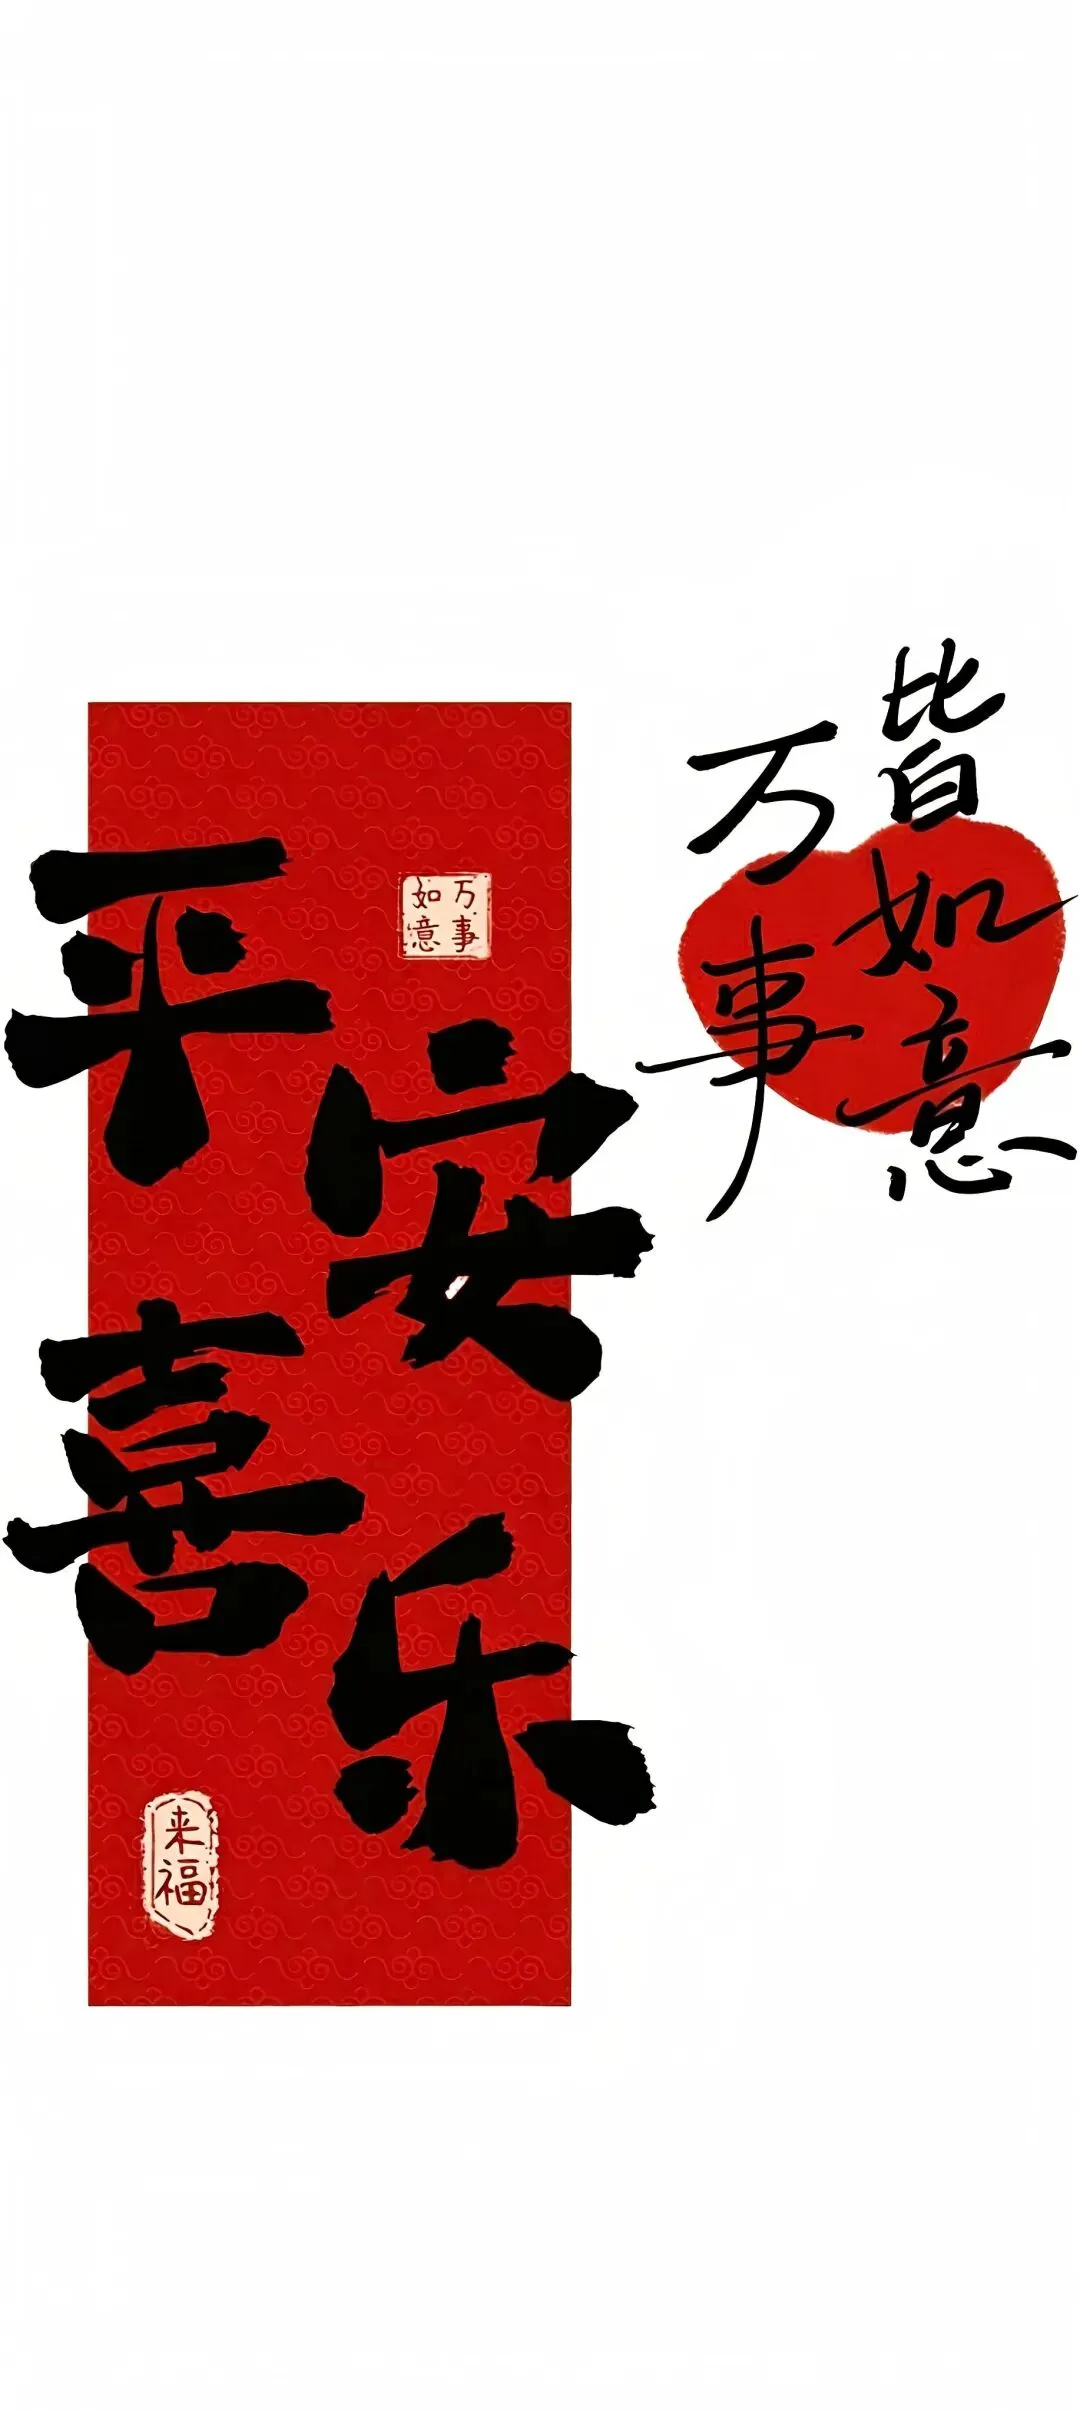 平安
喜乐
万事
如意
来福
万事
皆如意